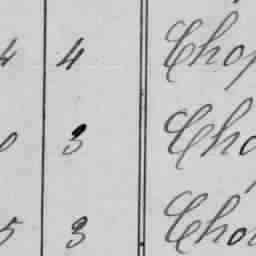 4 4 Chop
0 3 Cho
5 3 Cho